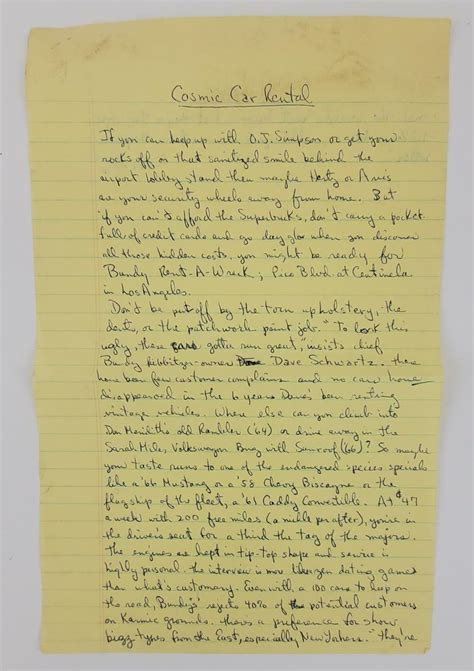 Cosmic Car Rental
If you can keep up with O.J. Simpson or get your
rocks off on that sanitized smile behind the
airport lobby stand then maybe Hertz or Avis
are your security wheels away from home. But
if you can't afford the Superbucks, don't carry a pocket
full of credit cards and go day glo when you discover
all those hidden costs, you might be ready for
Bundy Rent-A-Wreck; Pico Blvd. at Centinela
in Los Angeles.
Don't be put off by the torn upholstery, the
dents, or the patchwork paint job. "To look this
ugly, these cars gotta run great," insists chief
Bundy owner Dave Schwartz. There
have been few customer complains and no cars have
disappeared in the 6 years Dave's been renting
vintage vehicles. Where else can you climb into
Don Meridith's old Rambler ('64) or drive away in the
Sarah Miles Volkswagen Bug with Sunroof ('66)? So maybe
your taste runs to one of the endangered species specials
like a '66 Mustang or a '58 Chevy Biscayne or the
flagship of the fleet, a '61 Caddy Convertible. At $47
a week with 200 free miles (a nickle per after), you're in
the driver's seat for a third the tag of the majors.
The engines are kept in tip-top shape and service is
highly personal. the interview is more dating game
than what's customary. Even with a 100 cars to keep on
the road, Bundy's rejects 40% of the potential customers
on Karmic grounds. theres a preference for show
bizz types from the East, especially New Yorkers. "they're